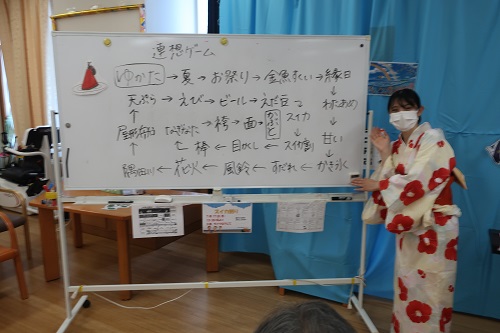 連想ゲーム
ゆかた→夏→お祭り→金魚すくい→縁日
天ぷら→えび→ビール→えだ豆 わたあめ
屋形船 なぎなた→袴→面→かぶと スイカ
棒←目かくし←スイカ割 甘い
隅田川←花火←風鈴←すだれ←かき氷